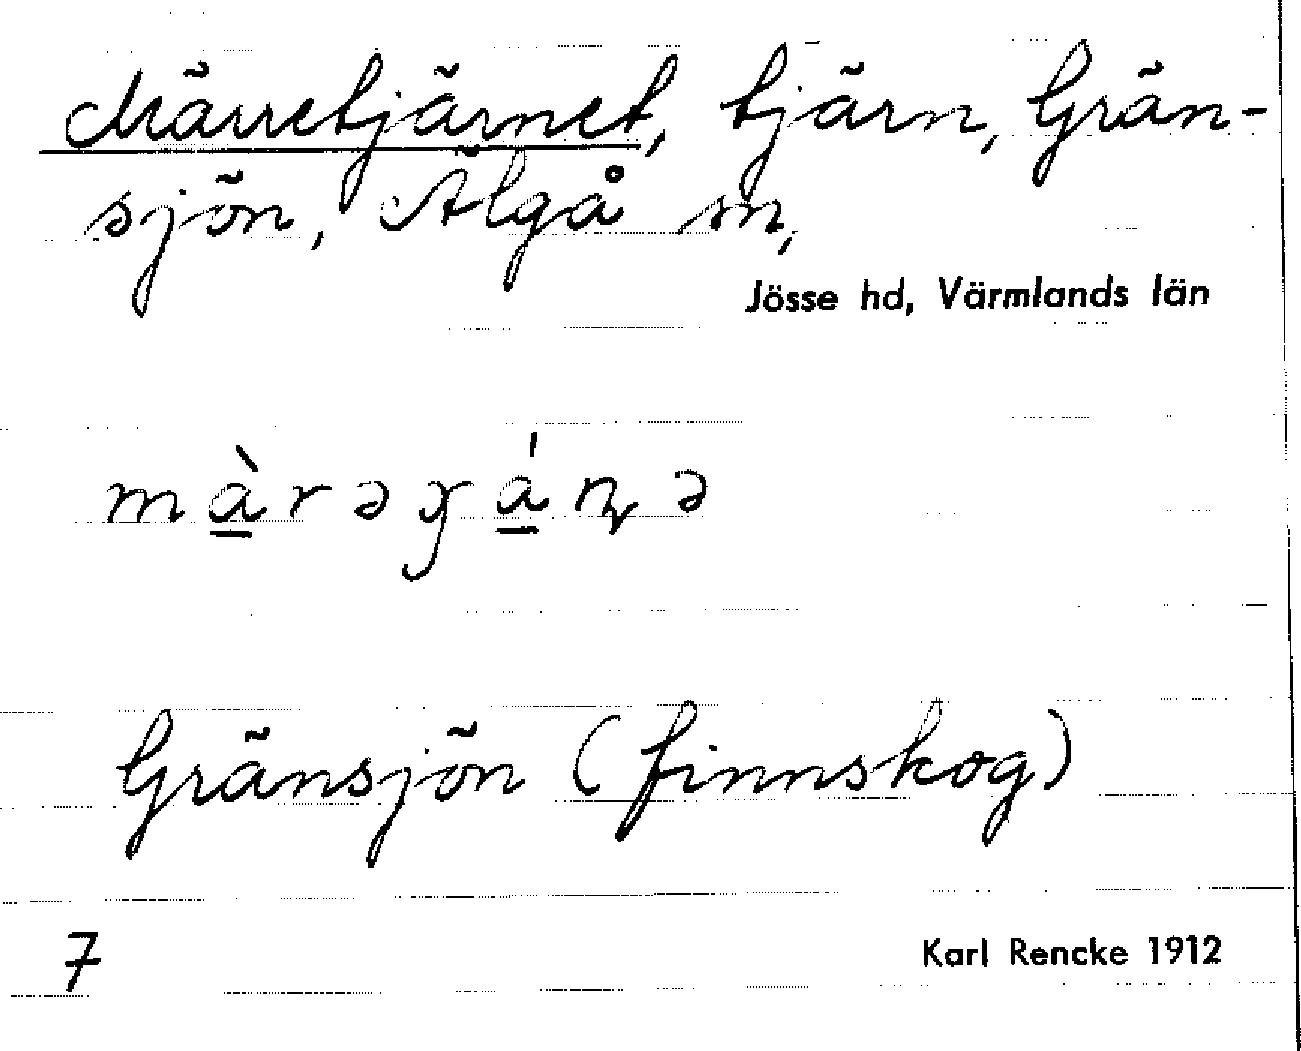 Märretjärnet, tjärn, Grän-
sjön, Älgå sn,
Jösse hd, Värmlands län
m<u>à</u>rəɣ<u>á</u>ɳə
Gränsjön (finnskog)
7
Karl Rencke 1912